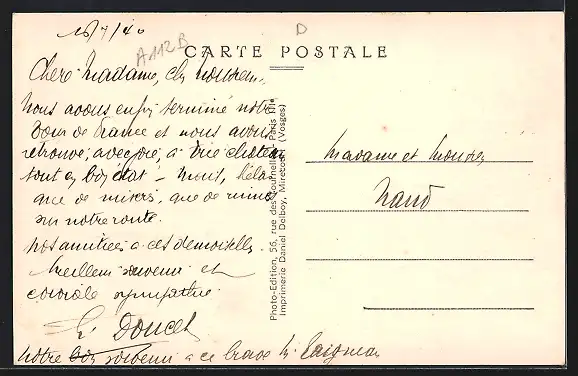 16/7/40
A112B
D
CARTE POSTALE
Chère Madame, cher Monsieur,
Nous avons enfin terminé notre
Tour de France et nous avons
retrouvé, avec joie, à Brie château
tout en bon état — mais, hélas
que de misères, que de ruines
sur notre route.
nos amitiés à ces demoiselles.
Meilleur souvenir et
cordiale sympathie.
Doucet
Notre bon souvenir à ce brave
Photo-Edition, 56, rue des Tournelles, Paris IIIe
Imprimerie Daniel Delboy, Mirecourt (Vosges)
Madame et Monsieur